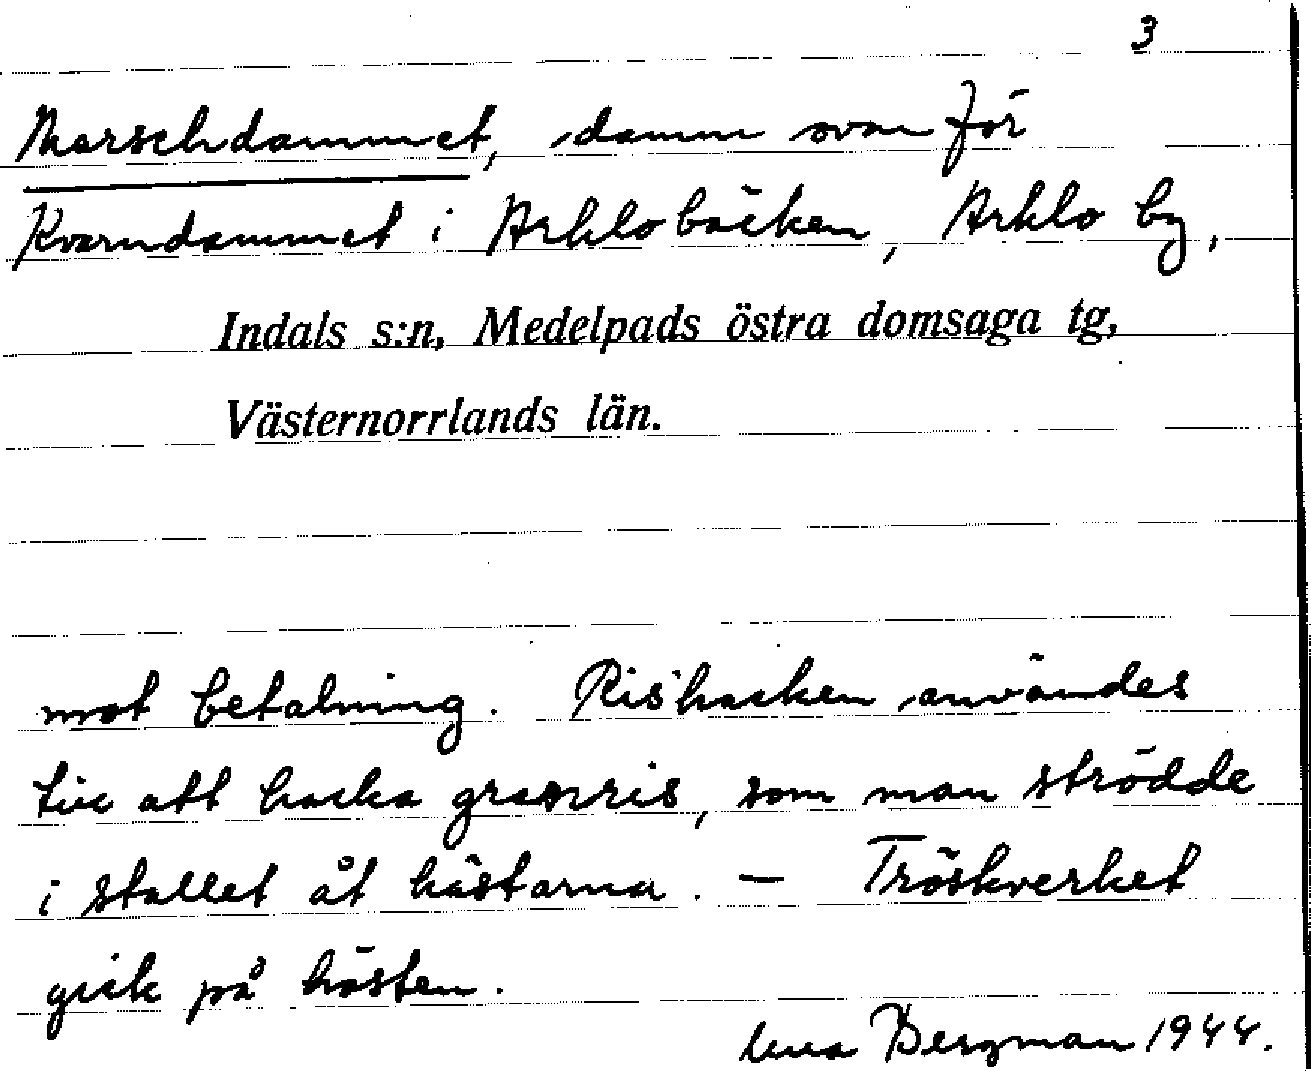 3
Marschdammet, damm ovan för
Kvarndammet i Arklobäcken, Arklo by,
Indals s:n, Medelpads östra domsaga tg,
Västernorrlands län.
mot betalning. Rishacken användes
till att hacka granris, som man strödde
i stallet åt hästarna. — Tröskverket
gick på hösten.
Bergman 1944.